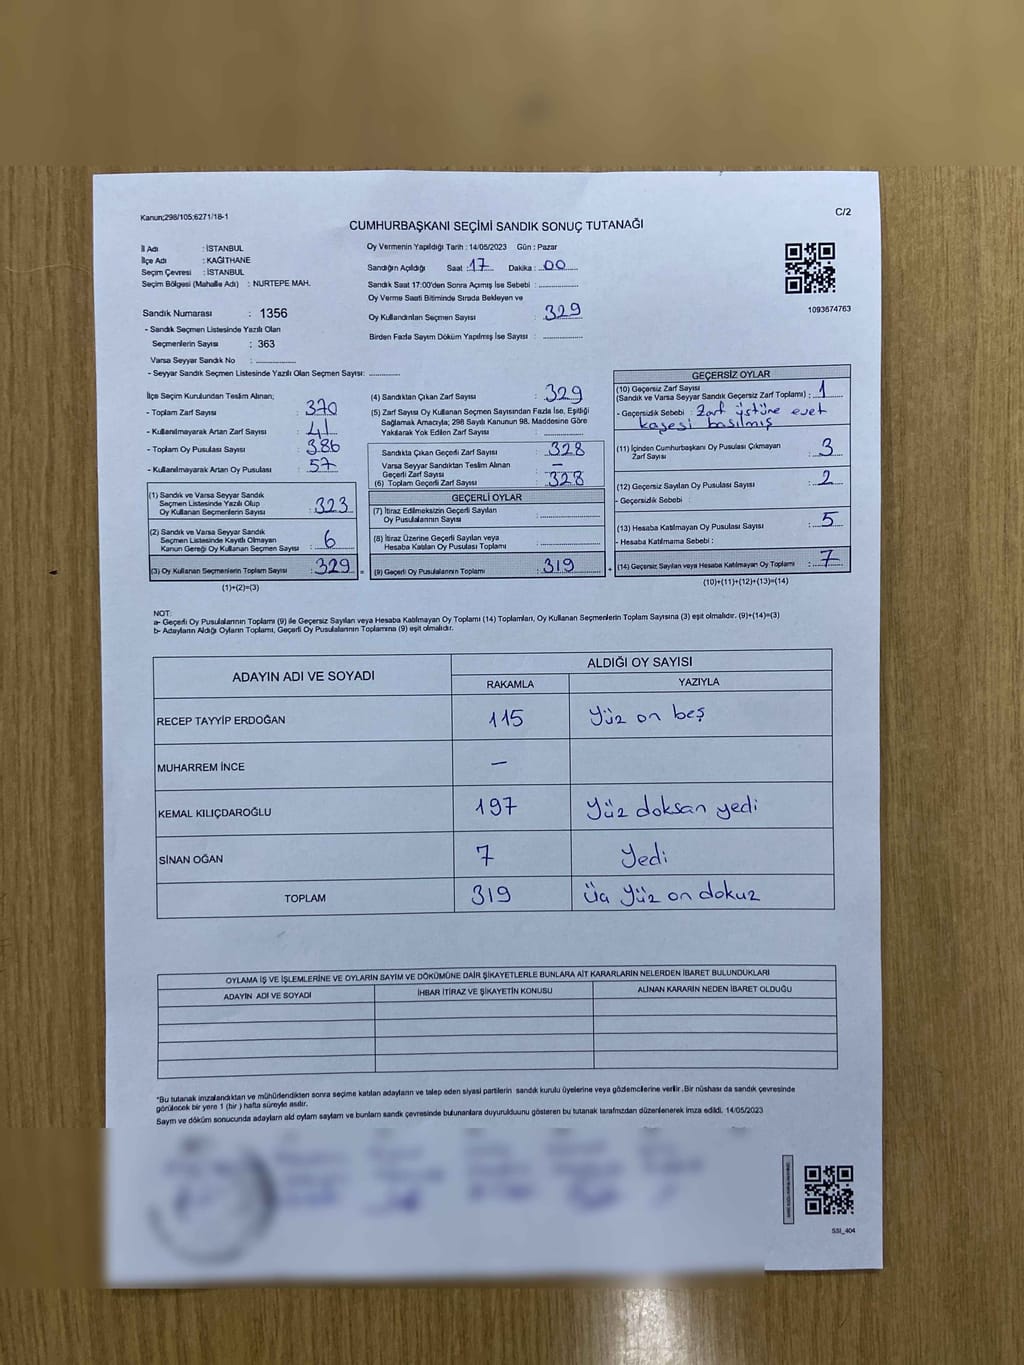 Kanun;298/105;6271/18-1
C/2
CUMHURBAŞKANI SEÇİMİ SANDIK SONUÇ TUTANAĞI
İl Adı : İSTANBUL
İlçe Adı : KAĞITHANE
Seçim Çevresi : İSTANBUL
Seçim Bölgesi (Mahalle Adı) : NURTEPE MAH.
Sandık Numarası : 1356
- Sandık Seçmen Listesinde Yazılı Olan
Seçmenlerin Sayısı : 363
Varsa Seyyar Sandık No : ............
- Seyyar Sandık Seçmen Listesinde Yazılı Olan Seçmen Sayısı: ............
Oy Vermenin Yapıldığı Tarih : 14/05/2023 Gün : Pazar
Sandığın Açıldığı Saat : 17 Dakika : 00
Sandık Saat 17:00'den Sonra Açımış İse Sebebi : ............
Oy Verme Saati Bitiminde Sırada Bekleyen ve
Oy Kullandırılan Seçmen Sayısı : 329
Birden Fazla Sayım Döküm Yapılmış İse Sayısı : ............
1093674763
İlçe Seçim Kurulundan Teslim Alınan;
- Toplam Zarf Sayısı : 370
- Kullanılmayarak Artan Zarf Sayısı : 41
- Toplam Oy Pusulası Sayısı : 386
- Kullanılmayarak Artan Oy Pusulası : 57
(1) Sandık ve Varsa Seyyar Sandık
Seçmen Listesinde Yazılı Olup
Oy Kullanan Seçmenlerin Sayısı : 323
(2) Sandık ve Varsa Seyyar Sandık
Seçmen Listesinde Kayıtlı Olmayan
Kanun Gereği Oy Kullanan Seçmen Sayısı : 6
(3) Oy Kullanan Seçmenlerin Toplam Sayısı : 329
(1)+(2)=(3)
(4) Sandıktan Çıkan Zarf Sayısı : 329
(5) Zarf Sayısı Oy Kullanan Seçmen Sayısından Fazla İse, Eşitliği
Sağlamak Amacıyla; 298 Sayılı Kanunun 98. Maddesine Göre
Yakılarak Yok Edilen Zarf Sayısı : ............
Sandıkta Çıkan Geçerli Zarf Sayısı : 328
Varsa Seyyar Sandıktan Teslim Alınan
Geçerli Zarf Sayısı : —
(6) Toplam Geçerli Zarf Sayısı : 328
GEÇERLİ OYLAR
(7) İtiraz Edilmeksizin Geçerli Sayılan
Oy Pusulalarının Sayısı : ............
(8) İtiraz Üzerine Geçerli Sayılan veya
Hesaba Katılan Oy Pusulası Toplamı : ............
= (9) Geçerli Oy Pusulalarının Toplamı : 319
GEÇERSİZ OYLAR
(10) Geçersiz Zarf Sayısı
(Sandık ve Varsa Seyyar Sandık Geçersiz Zarf Toplamı) : 1
- Geçersizlik Sebebi : Zarf üstüne evet
kaşesi basılmış
(11) İçinden Cumhurbaşkanı Oy Pusulası Çıkmayan
Zarf Sayısı : 3
(12) Geçersiz Sayılan Oy Pusulası Sayısı : 2
- Geçersizlik Sebebi :
(13) Hesaba Katılmayan Oy Pusulası Sayısı : 5
- Hesaba Katılmama Sebebi :
+ (14) Geçersiz Sayılan veya Hesaba Katılmayan Oy Toplamı : 7
(10)+(11)+(12)+(13)=(14)
NOT:
a- Geçerli Oy Pusulalarının Toplamı (9) ile Geçersiz Sayılan veya Hesaba Katılmayan Oy Toplamı (14) Toplamları, Oy Kullanan Seçmenlerin Toplam Sayısına (3) eşit olmalıdır. (9)+(14)=(3)
b- Adayların Aldığı Oyların Toplamı, Geçerli Oy Pusulalarının Toplamına (9) eşit olmalıdır.
ADAYIN ADI VE SOYADI ALDIĞI OY SAYISI
RAKAMLA YAZIYLA
RECEP TAYYİP ERDOĞAN 115 Yüz on beş
MUHARREM İNCE —
KEMAL KILIÇDAROĞLU 197 Yüz doksan yedi
SİNAN OĞAN 7 Yedi
TOPLAM 319 Üç Yüz on dokuz
OYLAMA İŞ VE İŞLEMLERİNE VE OYLARIN SAYIM VE DÖKÜMÜNE DAİR ŞİKAYETLERLE BUNLARA AİT KARARLARIN NELERDEN İBARET BULUNDUKLARI
ADAYIN ADI VE SOYADI İHBAR İTİRAZ VE ŞİKAYETİN KONUSU ALINAN KARARIN NEDEN İBARET OLDUĞU
*Bu tutanak imzalandıktan ve mühürlendikten sonra seçime katılan adayların ve talep eden siyasi partilerin sandık kurulu üyelerine veya gözlemcilerine verilir.Bir nüshası da sandık çevresinde
görülecek bir yere 1 (bir ) hafta süreyle asılır.
Sayım ve döküm sonucunda adayların ald oyların sayların ve bunların sandık çevresinde bulunanlara duyurulduunu gösteren bu tutanak tarafımzdan düzenlenerek imza edildi. 14/05/2023
SSI_404